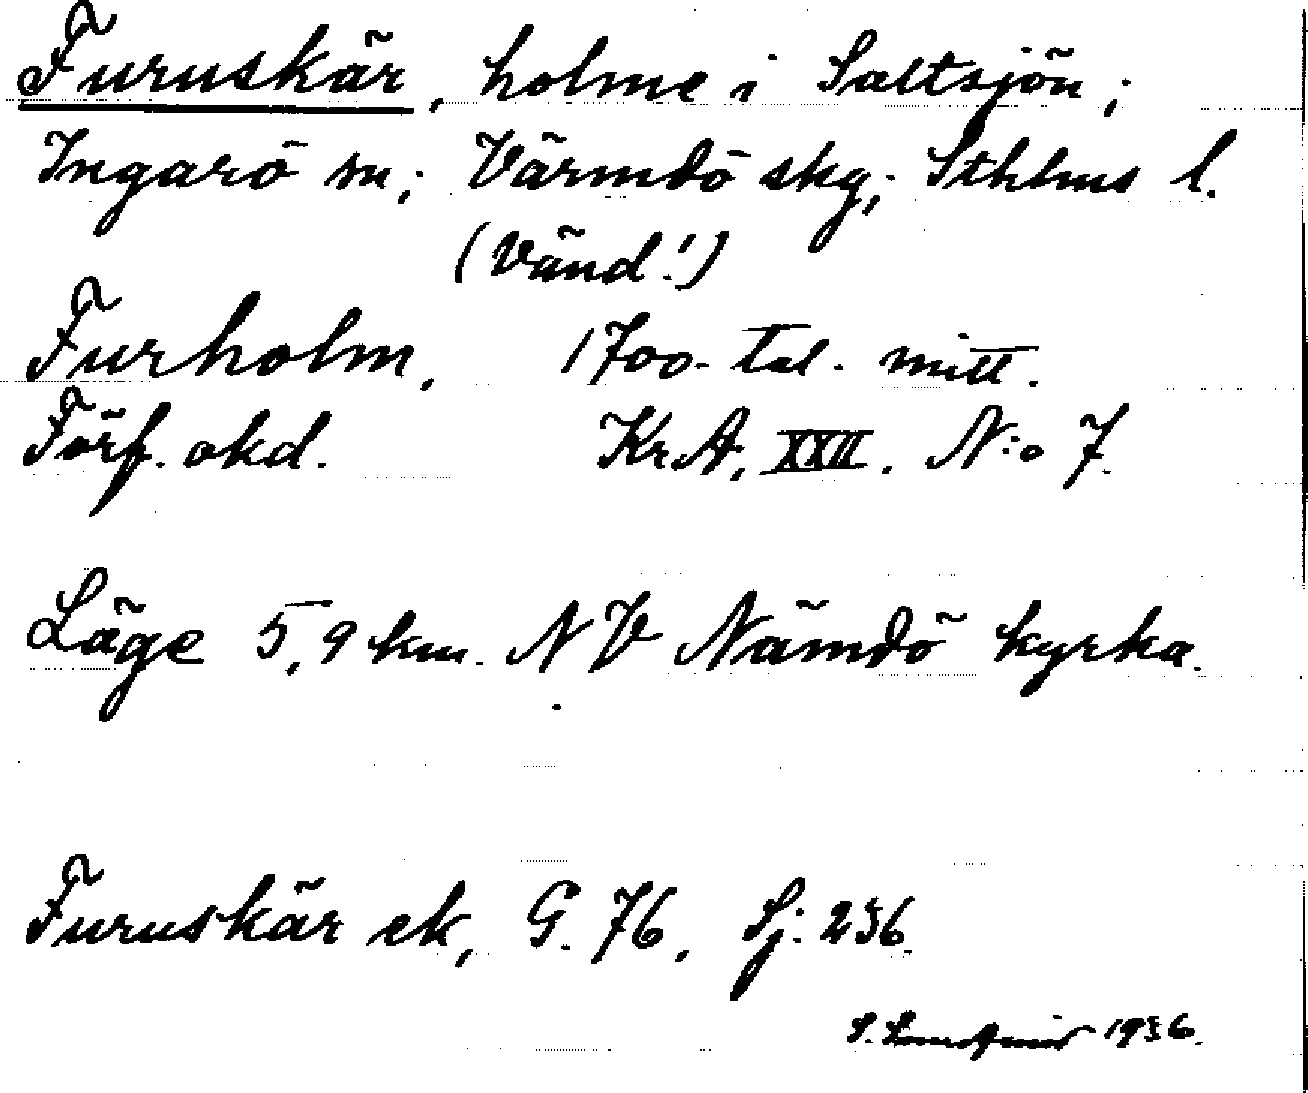 Furuskär, holme i Saltsjön;
Ingarö sn; Värmdö skg; Sthlms l.
(Vänd!)
Furholm. 1700-tal. mitt.
Förf. okd. Kr.A. XXII. N:o 7.
Läge 5,9 km. NV Nämdö kyrka.
Furuskär ek, G. 76. Sj: 236.
S. 1936.